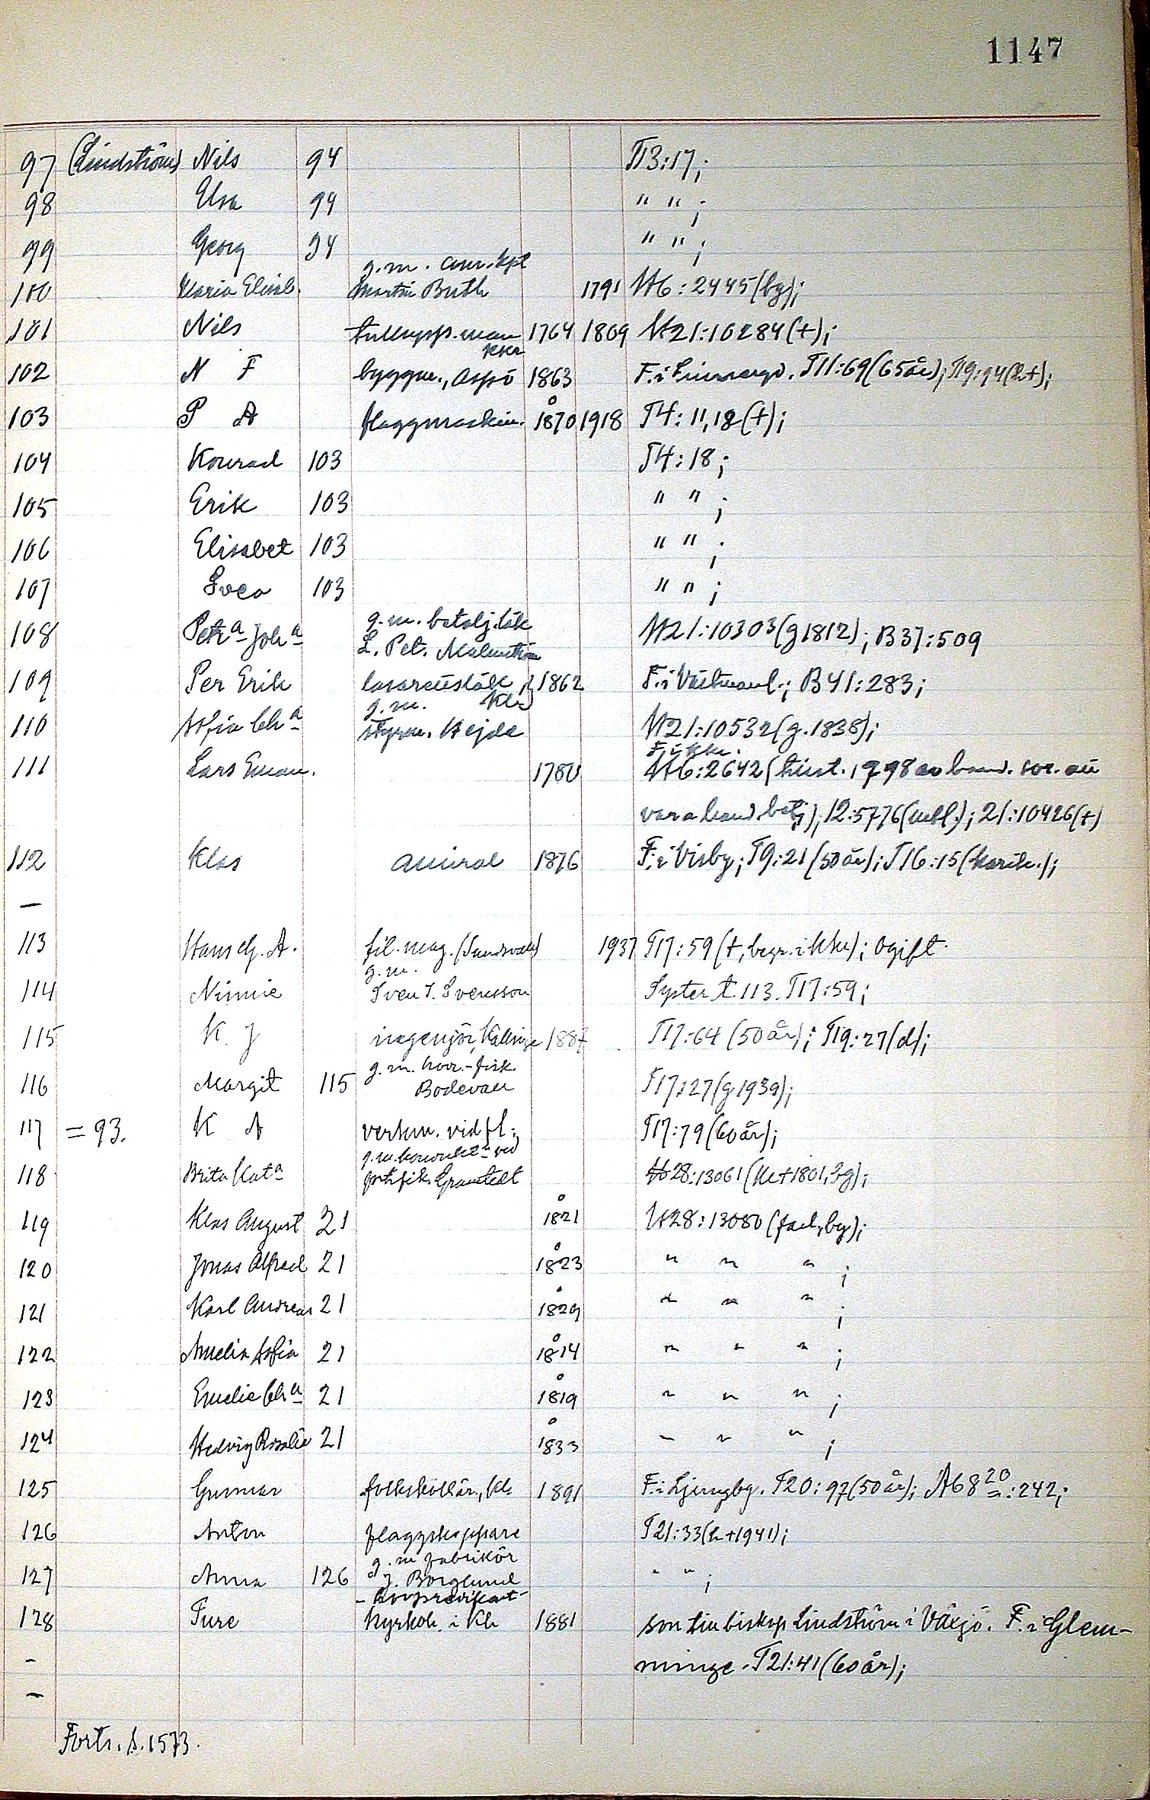 1147
97 (Lindström) Nils 94 T13:17;
98 Elsa 94 " " ;
99 Georg 94 " " ;
g.m. am.kpt
100 Maria Elisab. Martin Buth 1791 H6:2445(bg);
101 Nils tullupps.man 1764 1809 H21:10284(+);
Kkr
102 N F byggm., Aspö 1863 F. i T11:69(65år); T19:94(h+);
103 P A flaggmaskin. 1870 1918 T4:11,12(+);
104 Konrad 103 T4:18;
105 Erik 103 " " ;
106 Elisabet 103 " " ;
107 Svea 103 " " ;
g.m. bataljläk
108 Petra Joha L. Pet. Malmström H21:10303(g1812); B37:509
109 Per Erik lasarettsläk, 1862 F. i Västmanl.; B41:283;
g.m. Kkr
110 Sofia Cha styrm. Hejde H21:10532(g.1838);
F. i Kkr.
111 Lars Eman. 1780 H6:2642( 1798 av
vara 12:5776(; 21:10426(+)
112 Klas amiral 1876 F. i Visby; T9:21(50år); T16:15(karik.);
—
113 Hans G. A. fil. mag. (Sundsvall) 1937 T17:59(+, begr. i Kkr); Ogift.
g.m.
114 Ninnie Sven J. Svensson Syster t. 113. T17:59;
115 K. J ingenjör, Kallinge 1887 T17:64 (50år); T19:27(d);
g.m. hovr.-fisk.
116 Margit 115 Bodevall T17:27(g1939);
117 = 93. K A verkm. vid fl.; T17:79(60år);
118 Brita Kata Granstedt H28:13061(
119 Klas August 21 1821 H28:13080(fad, bg);
120 Jonas Alfred 21 1823 " " " ;
121 Karl Andreas 21 1829 " " " ;
122 Amelia Sofia 21 1814 " " " ;
123 Emelie Cha 21 1819 " " " ;
124 Hedvig Rosalie 21 1833 " " " ;
125 Gunnar folkskollär., Kkr 1891 F. i Ljungby. T20:97(50år); A68 20:242;
126 Anton flaggskeppare T21:33(h+1941);
g.m fabrikör
127 Anna 126 J. Borglund " " ;
128 Ture kyrkoh. i Kkr 1881 son till biskop Lindström i Växjö. F. i Glem-
- minge. T21:41(60år);
-
Forts. s. 1573.